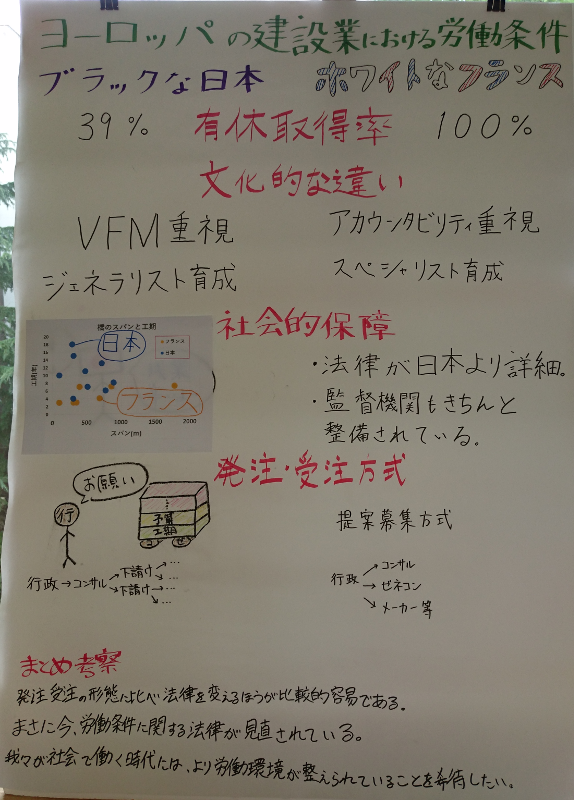 ヨーロッパの建設業における労働条件
ブラックな日本 ホワイトなフランス
39% 有休取得率 100%
文化的な違い
VFM重視 アカウンタビリティ重視
ジェネラリスト育成 スペシャリスト育成
社会的保障
橋のスパンと工期
日本
フランス
日本
フランス
20
18
16
14
12
10
8
6
4
2
0
0 500 1000 1500 2000
スパン(m)
・法律が日本より詳細。
・監督機関もきちんと
整備されている。
発注・受注方式
お願い
行
予算
工期
提案募集方式
行政→コンサル→下請け→…
→…
→下請け→…
→…
行政→コンサル
→ゼネコン
→メーカー等
まとめ考察
発注受注の形態に比べ法律を変えるほうが比較的容易である。
まさに今、労働条件に関する法律が見直されている。
我々が社会で働く時代には、より労働環境が整えられていることを期待したい。